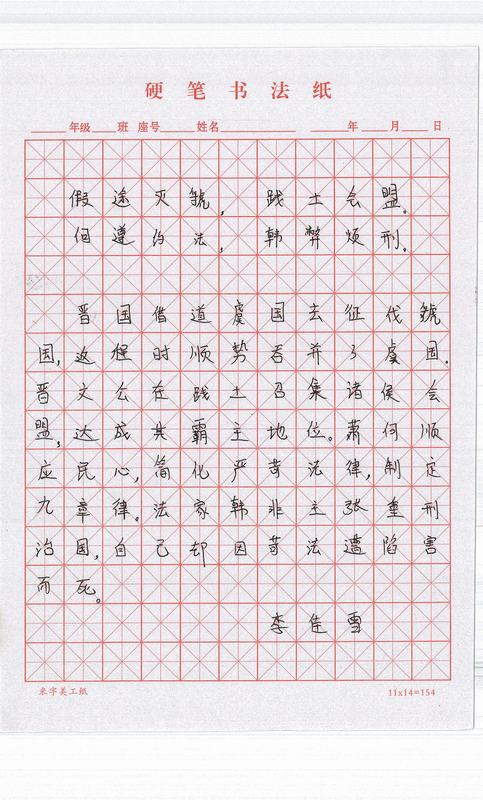 硬笔书法纸
年级 班 座号 姓名 年 月 日
假途灭虢,践土会盟。
何遵约法,韩弊烦刑。
晋国借道虞国去征伐虢
国,返程时顺势吞并了虞国。
晋文公在践土召集诸侯会
盟,达成其霸主地位。萧何顺
应民心,简化严苛法律,制定
九章律。法家韩非主张重刑
治国,自己却因苛法遭陷害
而死。
李佳雪
米字美工纸
11x14=154